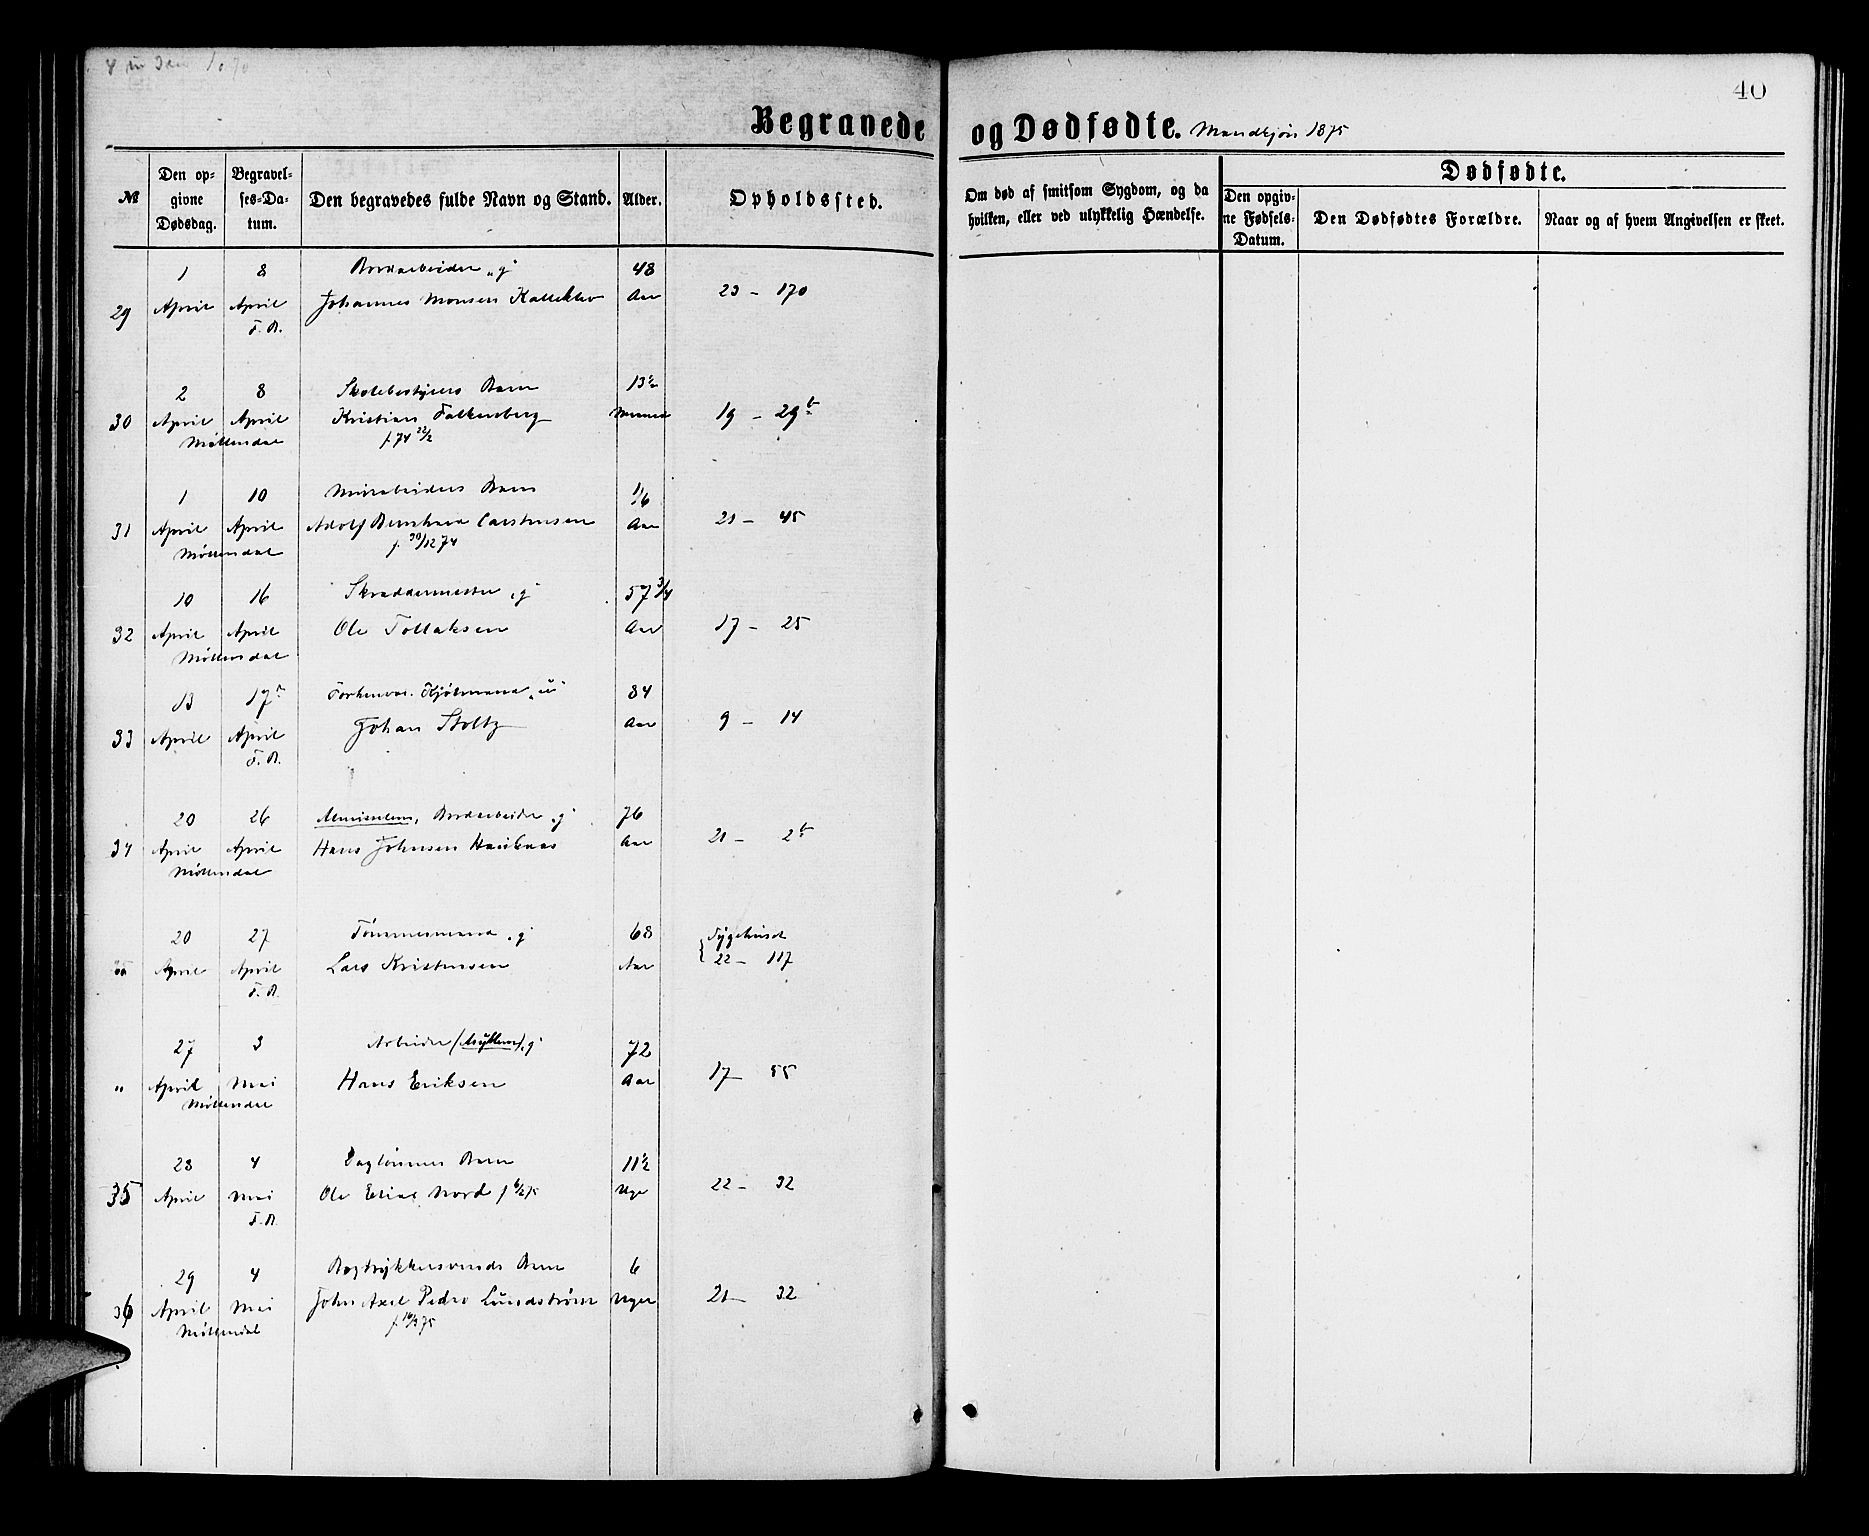 40
Begravede og Dødfødte. Mandkjøn 1875
№
Den opgivne Dødsdag.
Begravelses-Datum.
Den begravedes fulde Navn og Stand.
Alder.
Opholdssted.
Om død af smitsom Sygdom, og da hvilken, eller ved ulykkelig Hændelse.
Dødfødte.
Den opgivne Fødsels-Datum.
Den Dødfødtes Forældre.
Naar og af hvem Angivelsen er skeet.
1 8 Bordarbeider „g" 48
29 April April Johannes Monsen Kalleklev Aar 23 - 170
F. A.
2 8 Skolebestyrers Barn 13½
30 April April Kristian Falkenberg 19 - 29 b
Møllendal f. 74 22/2
1 10 Barn 1/6
31 April April Adolf Bernhard Carstensen Aar 21 - 45
Møllendal f. 30/12 74
10 16 Skræddermester „g" 57 3/4
32 April April Ole Tollaksen Aar 17 - 25
Møllendal
13 17 Forhenvær. Kjøbmand „u" 84
33 April April Johan Stoltz Aar 9 - 14
F. A.
20 26 Bordarbeider „g" 76
34 April April Hans Johnsen Aar 21 - 2 b
Møllendal
20 27 Tømmermand „g" 68 Sygehuset
April April Lars Kristensen Aar 22 - 117
F. A.
27 3 Arbeider „g" 72
" April Mai Hans Eriksen Aar 17 55
Møllendal
28 4 Daglønners Barn 11½
35 April Mai Ole Elias Nord Uger 22 - 32
F. A.
29 4 Bogtrykkersvends Barn 6
36 April Mai John Axel Pedro Lundstrøm Uger 21 - 32
Møllendal f. 16/3 75